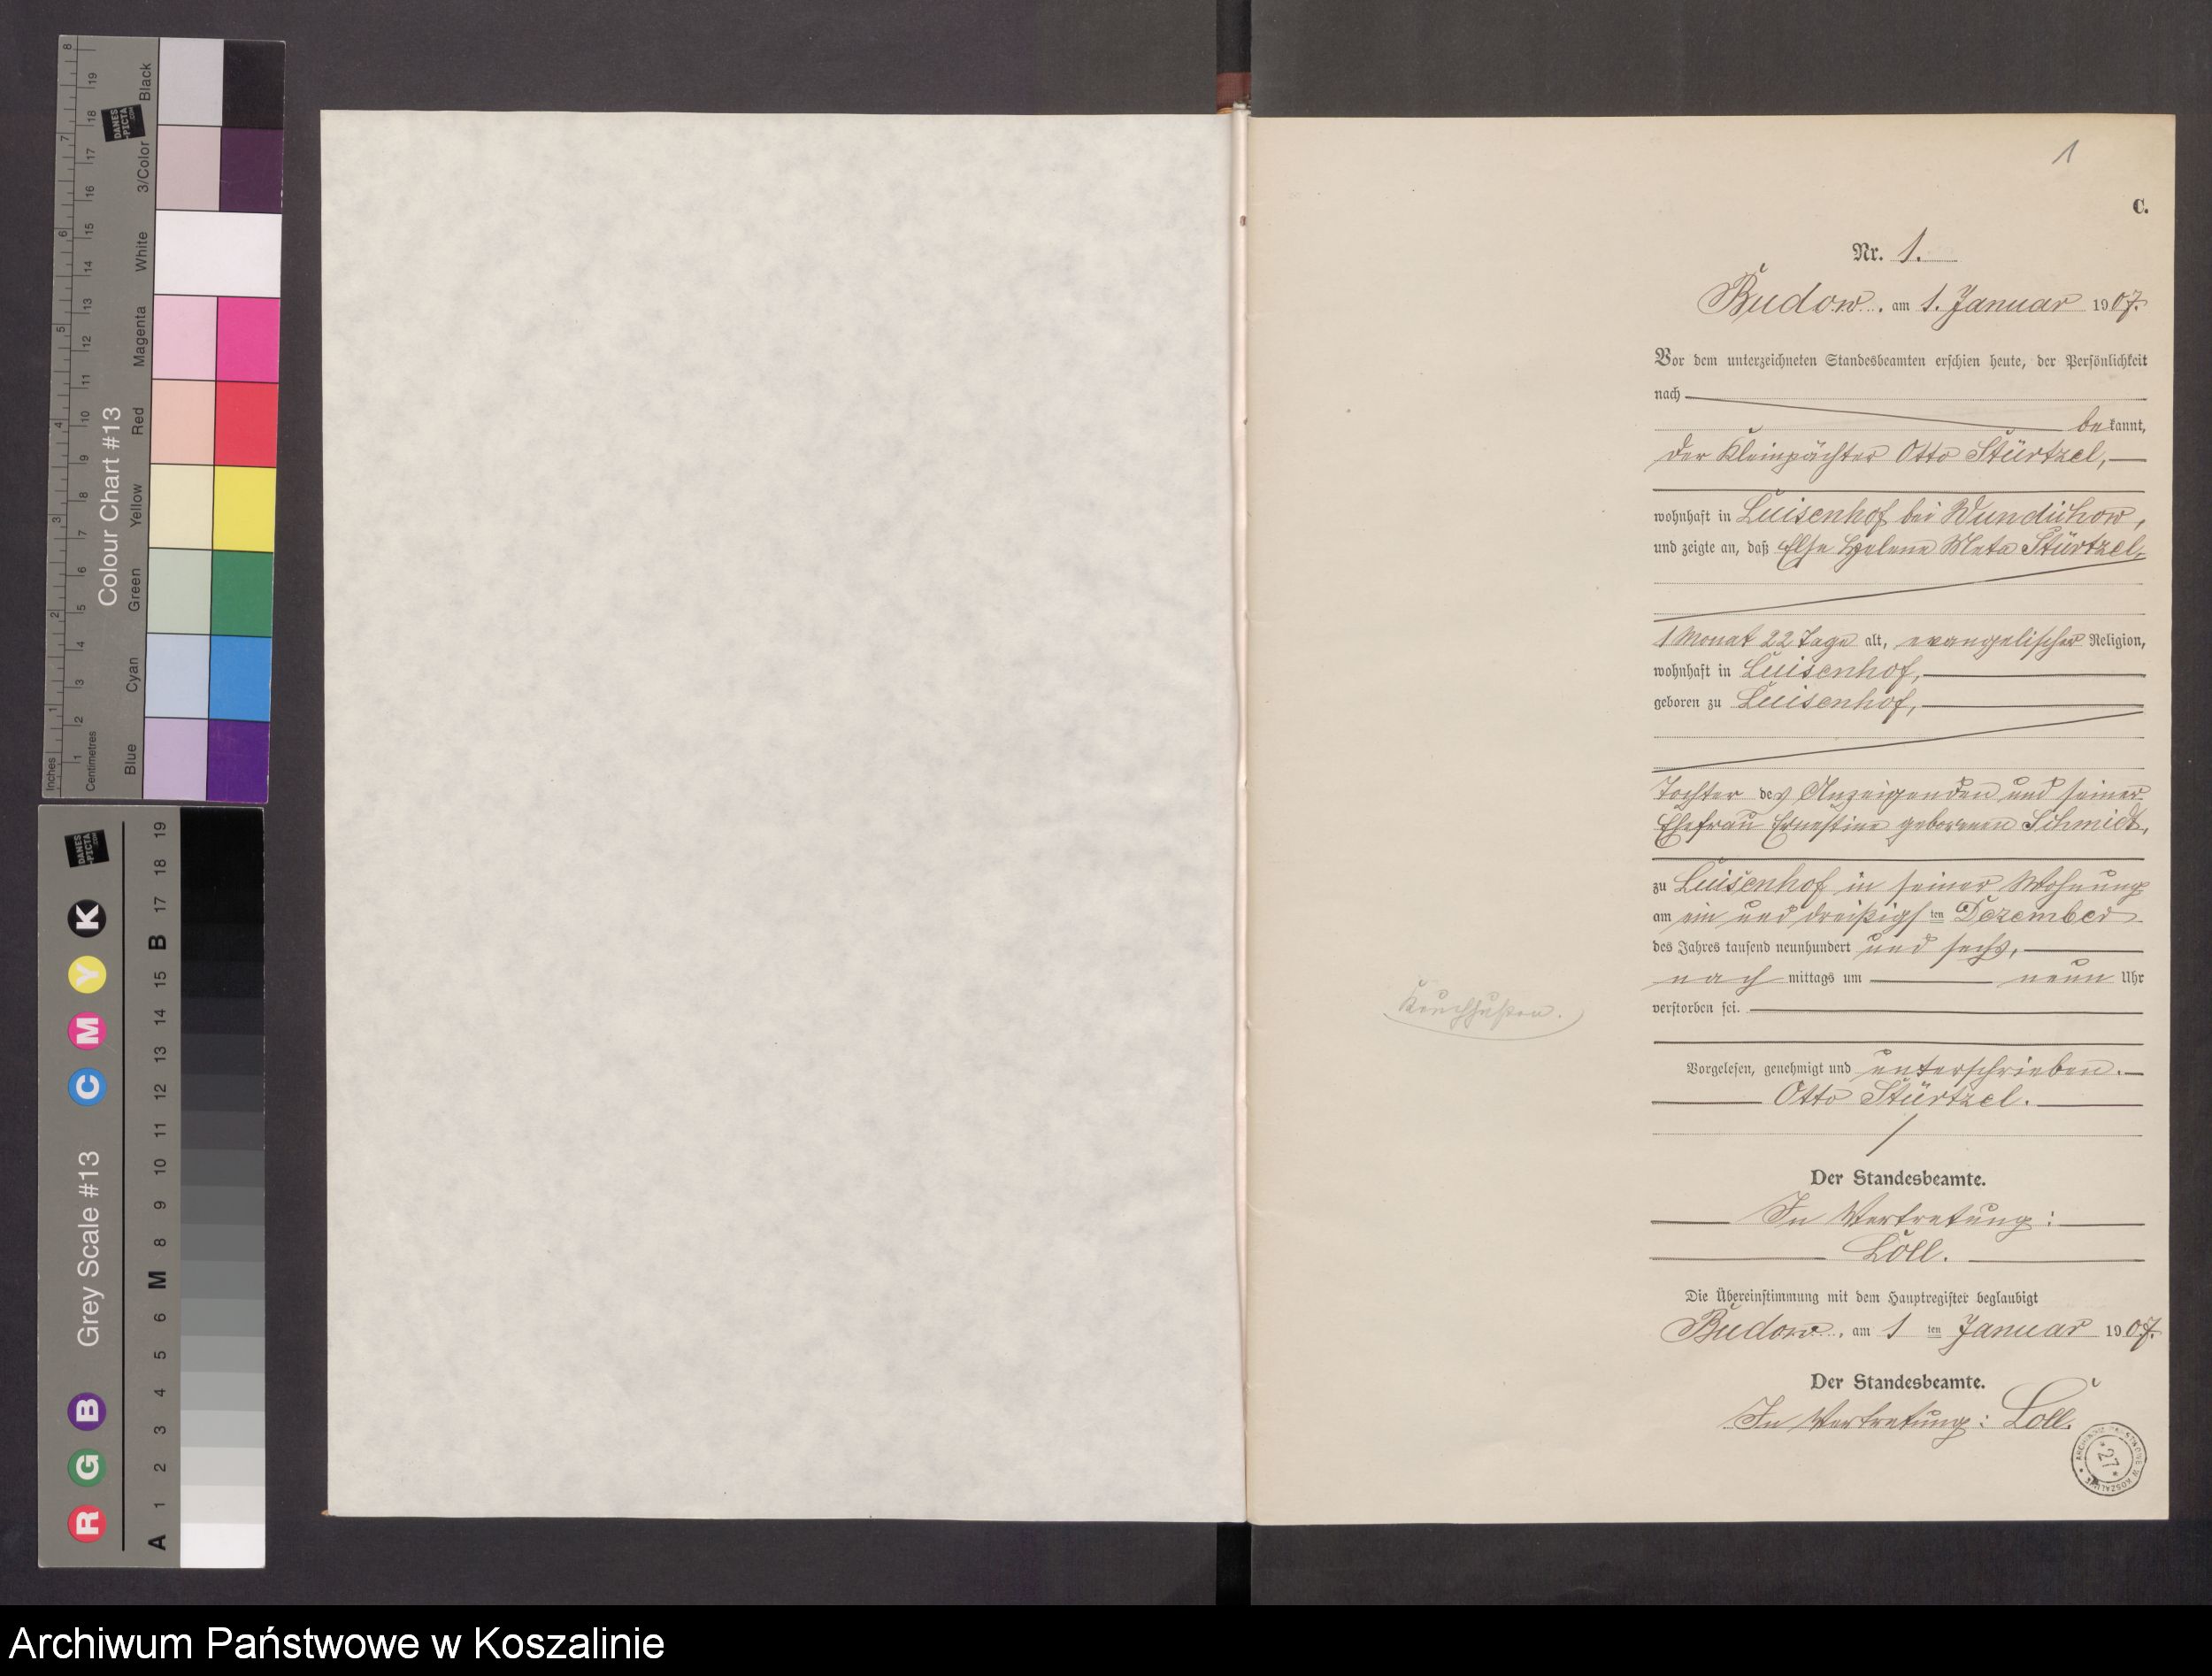 1
C.
Nr. 1.
Budow, am 1. Januar 1907.
Vor dem unterzeichneten Standesbeamten erschien heute, der Persönlichkeit
nach
be kannt,
der Kleinpächter Otto Stürtzel,
wohnhaft in Luisenhof bei Wundichow,
und zeigte an, daß Else Helene Meta Stürtzel,
1 Monat 22 Tage alt, evangelischer Religion,
wohnhaft in Luisenhof,
geboren zu Luisenhof,
Tochter des Anzeigenden und seiner
Ehefrau Ernestine geborenen Schmidt,
zu Luisenhof in seiner Wohnung
am ein und dreißigsten Dezember
des Jahres tausend neunhundert und sechs,
nach mittags um neun Uhr
verstorben sei.
Keuchhusten.
Vorgelesen, genehmigt und unterschrieben.
Otto Stürtzel.
Der Standesbeamte.
In Vertretung:
Löll.
Die Übereinstimmung mit dem Hauptregister beglaubigt
Budow, am 1 ten Januar 1907.
Der Standesbeamte.
In Vertretung: Loll.
ARCHIWUM PAŃSTWOWE W KOSZALINIE
* 27 *
Inches
1 2 3 4 5 6 7 8
Centimetres
1 2 3 4 5 6 7 8 9 10 11 12 13 14 15 16 17 18 19
Colour Chart #13
Blue Cyan Green Yellow Red Magenta White 3/Color Black
DANES
-PICTA
.COM
R G B Grey Scale #13 C M Y K
A 1 2 3 4 5 6 M 8 9 10 11 12 13 14 15 B 17 18 19
DANES
-PICTA
.COM
Archiwum Państwowe w Koszalinie